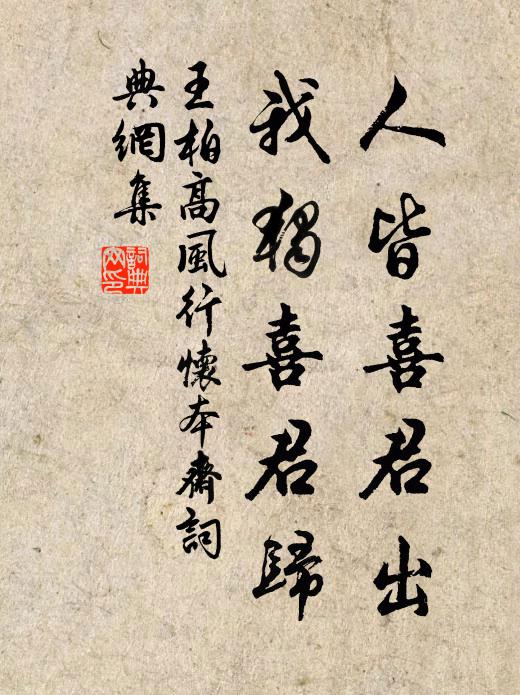 人皆喜君出
我獨喜君歸
王柏高風行懷本齋詞
典網集
詞典網印